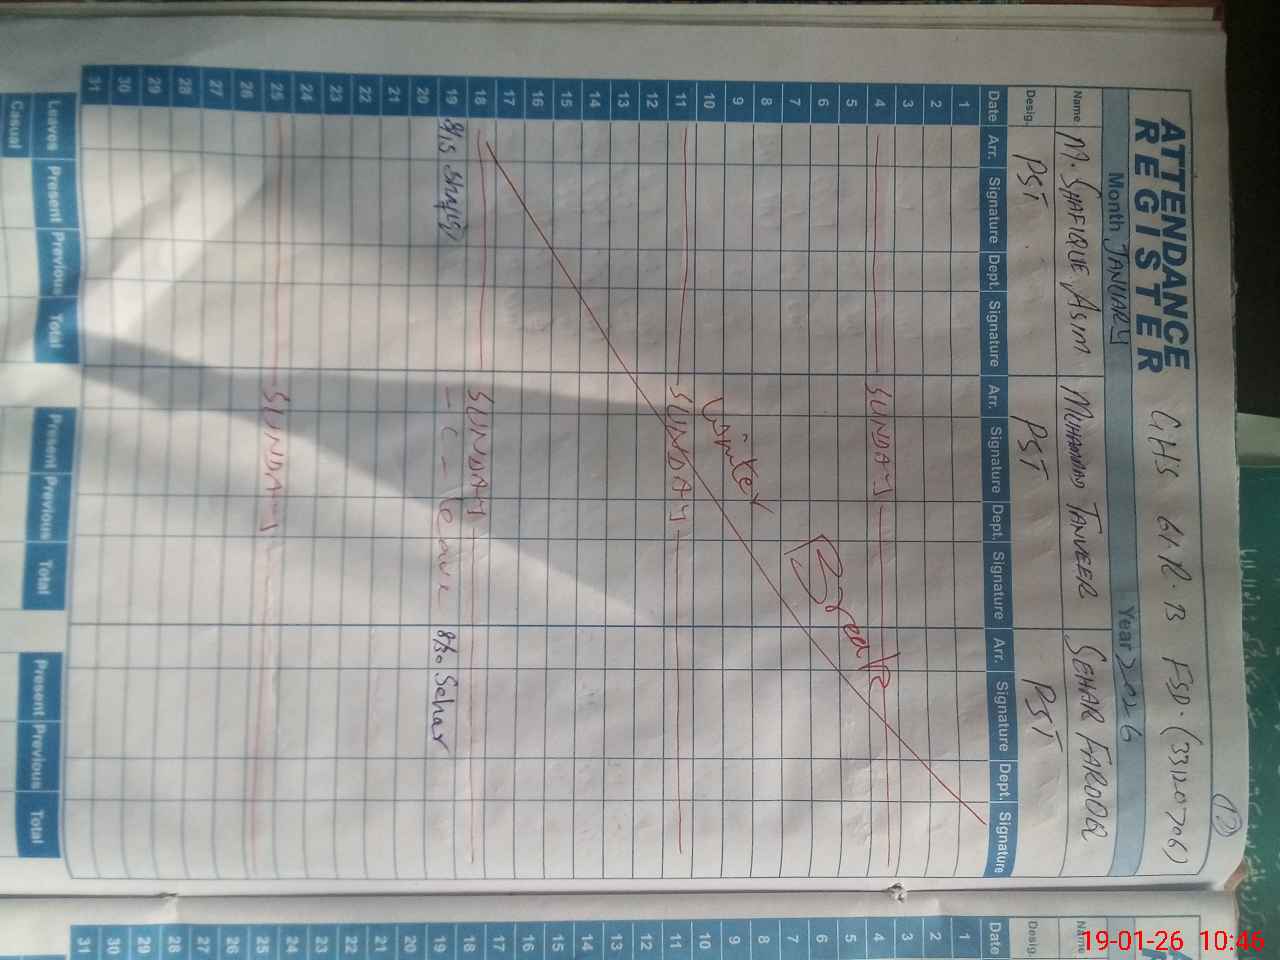 ATTENDANCE REGISTER
GHS 61 R.B FSD. (33120706)
12
Month JANUARY Year 2026
Name M. SHAFIQUE ASIM MUHAMMAD TANVEER SEHAR FAROOQ
Desig. PST PST PST
Date Arr. Signature Dept. Signature Arr. Signature Dept. Signature Arr. Signature Dept. Signature
1
2
3
4 SUNDAY
5
6
7
8
9
10
11 SUNDAY
12
13
14
15
16
17
Winter Break
18 SUNDAY
19 8/15 - C - Leave 8/30 Sehar
20
21
22
23
24
25 SUNDAY
26
27
28
29
30
31
Leaves Present Previous Total Present Previous Total Present Previous Total
Casual
Name
Desig.
Date
1
2
3
4
5
6
7
8
9
10
11
12
13
14
15
16
17
18
19
20
21
22
23
24
25
26
27
28
29
30
31
19-01-26 10:46